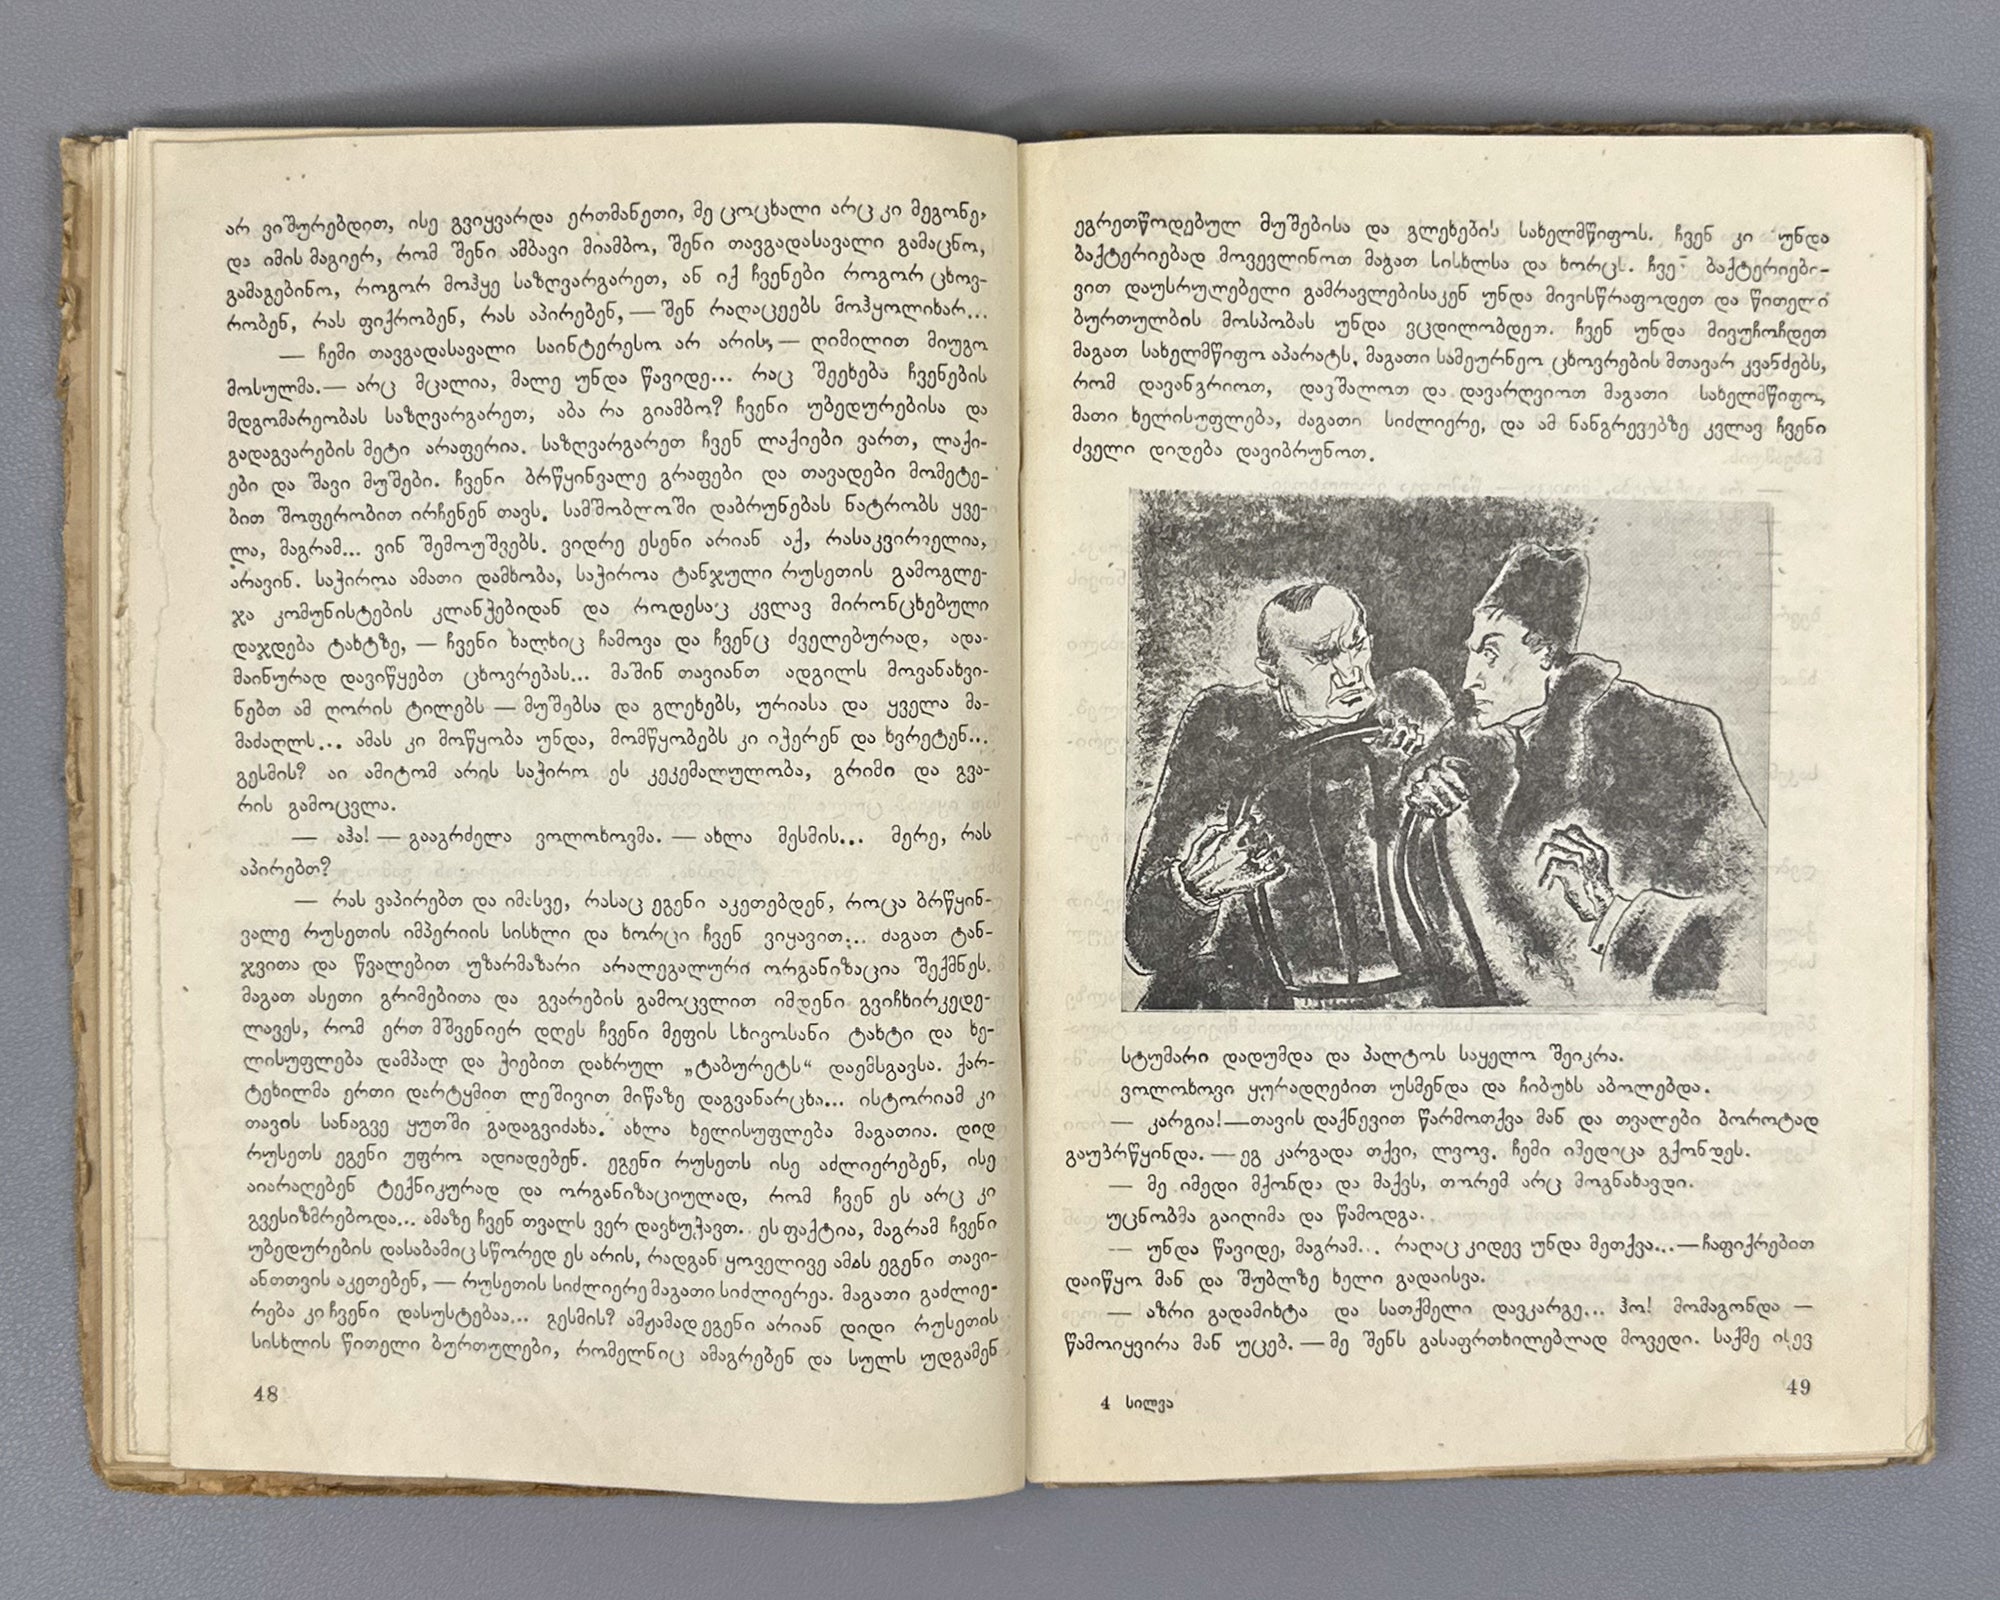 არ ვიშურებდით, ისე გვიყვარდა ერთმანეთი, მე ცოცხალი არც კი მეგონე,
და იმის მაგიერ, რომ შენი ამბავი მიამბო, შენი თავგადასავალი გამაცნო,
გამაგებინო, როგორ მოჰყე საზღვარგარეთ, ან იქ ჩვენები როგორ ცხოვ-
რობენ, რას ფიქრობენ, რას აპირებენ, — შენ რაღაცეებს მოჰყოლიხარ...
— ჩემი თავგადასავალი საინტერესო არ არის, — ღიმილით მიუგო
მოსულმა.— არც მცალია, მალე უნდა წავიდე... რაც შეეხება ჩვენების
მდგომარეობას საზღვარგარეთ, აბა რა გიამბო? ჩვენი უბედურებისა და
გადაგვარების მეტი არაფერია. საზღვარგარეთ ჩვენ ლაქიები ვართ, ლაქი-
ები და შავი მუშები. ჩვენი ბრწყინვალე გრაფები და თავადები მომეტე-
ბით შოფერობით ირჩენენ თავს. სამშობლოში დაბრუნებას ნატრობს ყვე-
ლა, მაგრამ... ვინ შემოუშვებს. ვიდრე ესენი არიან აქ, რასაკვირველია,
არავინ. საჭიროა ამათი დამხობა, საჭიროა ტანჯული რუსეთის გამოგლე-
ჯა კომუნისტების კლანჭებიდან და როდესაც კვლავ მირონცხებული
დაჯდება ტახტზე, — ჩვენი ხალხიც ჩამოვა და ჩვენც ძველებურად, ადა-
მაინურად დავიწყებთ ცხოვრებას... მაშინ თავიანთ ადგილს მოვანახვი-
ნებთ ამ ღორის ტილებს — მუშებსა და გლეხებს, ურიასა და ყველა მა-
მაძაღლს... ამას კი მოწყობა უნდა, მომწყობებს კი იჭერენ და ხვრეტენ...
გესმის? აი ამიტომ არის საჭირო ეს კეკემალულობა, გრიმი და გვა-
რის გამოცვლა.
— აჰა! — გააგრძელა ვოლოხოვმა. — ახლა მესმის... მერე, რას
აპირებთ?
— რას ვაპირებთ და იმასვე, რასაც ეგენი აკეთებდენ, როცა ბრწყინ-
ვალე რუსეთის იმპერიის სისხლი და ხორცი ჩვენ ვიყავით... მაგათ ტან-
ჯვითა და წვალებით უზარმაზარი არალეგალური ორგანიზაცია შექმნეს.
მაგათ ასეთი გრიმებითა და გვარების გამოცვლით იმდენი გვიჩხირკედე-
ლავეს, რომ ერთ მშვენიერ დღეს ჩვენი მეფის სხივოსანი ტახტი და ხე-
ლისუფლება დამპალ და ჭიებით დახრულ „ტაბურეტს“ დაემსგავსა. ქარ-
ტეხილმა ერთი დარტყმით ლეშივით მიწაზე დაგვანარცხა... ისტორიამ კი
თავის სანაგვე ყუთში გადაგვიძახა. ახლა ხელისუფლება მაგათია. დიდ
რუსეთს ეგენი უფრო ადიადებენ. ეგენი რუსეთს ისე აძლიერებენ, ისე
აიარაღებენ ტექნიკურად და ორგანიზაციულად, რომ ჩვენ ეს არც კი
გვესიზმრებოდა... ამაზე ჩვენ თვალს ვერ დავხუჭავთ. ეს ფაქტია, მაგრამ ჩვენი
უბედურების დასაბამიც სწორედ ეს არის, რადგან ყოველივე ამას ეგენი თავი-
ანთთვის აკეთებენ, — რუსეთის სიძლიერე მაგათი სიძლიერეა. მაგათი გაძლიე-
რება კი ჩვენი დასუსტებაა... გესმის? ამჟამად ეგენი არიან დიდი რუსეთის
სისხლის წითელი ბურთულები, რომელნიც ამაგრებენ და სულს უდგამენ
48
ეგრეთწოდებულ მუშებისა და გლეხების სახელმწიფოს. ჩვენ კი უნდა
ბაქტერიებად მოვევლინოთ მაგათ სისხლსა და ხორცს. ჩვენ ბაქტერიები-
ვით დაუსრულებელი გამრავლებისაკენ უნდა მივისწრაფოდეთ და წითელი
ბურთულბის მოსპობას უნდა ვცდილობდეთ. ჩვენ უნდა მივუჩოჩდეთ
მაგათ სახელმწიფო აპარატს, მაგათი სამეურნეო ცხოვრების მთავარ კვანძებს,
რომ დავანგრიოთ, დავშალოთ და დავარღვიოთ მაგათი სახელმწიფო,
მათი ხელისუფლება, მაგათი სიძლიერე, და ამ ნანგრევებზე კვლავ ჩვენი
ძველი დიდება დავიბრუნოთ.
სტუმარი დადუმდა და პალტოს საყელო შეიკრა.
ვოლოხოვი ყურადღებით უსმენდა და ჩიბუხს აბოლებდა.
— კარგია!—თავის დაქნევით წარმოთქვა მან და თვალები ბოროტად
გაუბრწყინდა. — ეგ კარგადა თქვი, ლვოვ. ჩემი იმედიცა გქონდეს.
— მე იმედი მქონდა და მაქვს, თორემ არც მოგნახავდი.
უცნობმა გაიღიმა და წამოდგა.
— უნდა წავიდე, მაგრამ... რაღაც კიდევ უნდა მეთქვა...—ჩაფიქრებით
დაიწყო მან და შუბლზე ხელი გადაისვა.
— აზრი გადამიხტა და სათქმელი დავკარგე... ჰო! მომაგონდა —
წამოიყვირა მან უცებ. — მე შენს გასაფრთხილებლად მოვედი. საქმე ისევ
4 სილვა
49